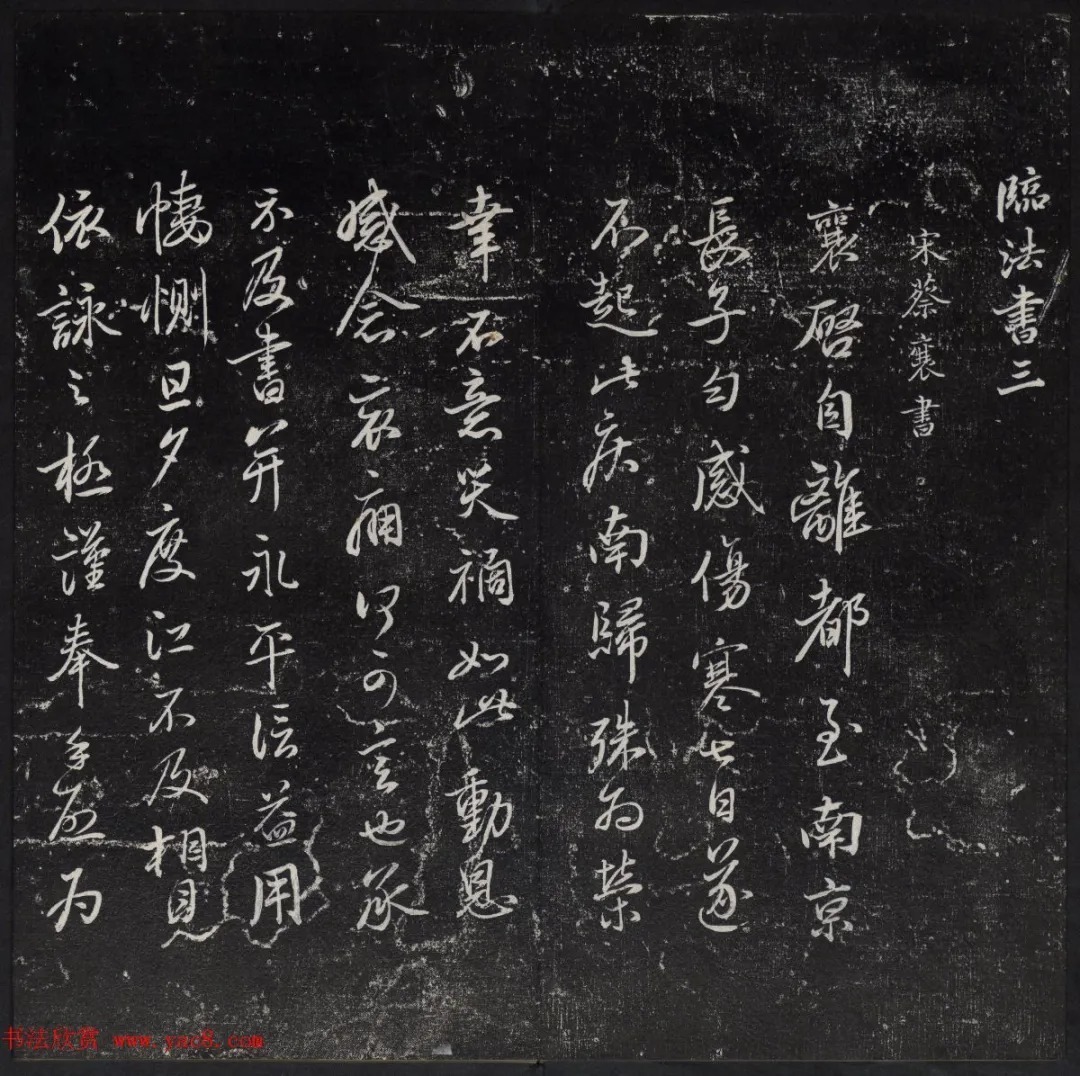 臨法書三
宋蔡襄書
襄啓自離都至南京
長子勻感傷寒七日遂
不起此疾南歸殊為榮
幸不意災禍如此動息
感念哀痛何可言也承
示及書并永平信益用
悽惻旦夕度江不及相見
依詠之極謹奉手啓為
书法欣赏 www.yac8.com